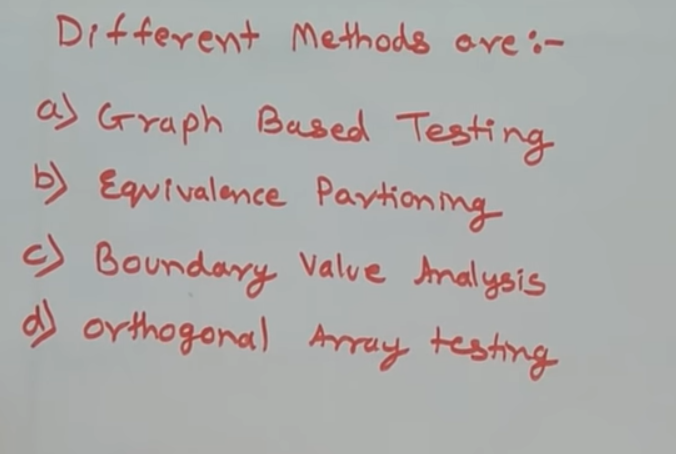 Different Methods are :-
a) Graph Based Testing
b) Equivalence Partioning
c) Boundary Value Analysis
d) orthogonal Array testing